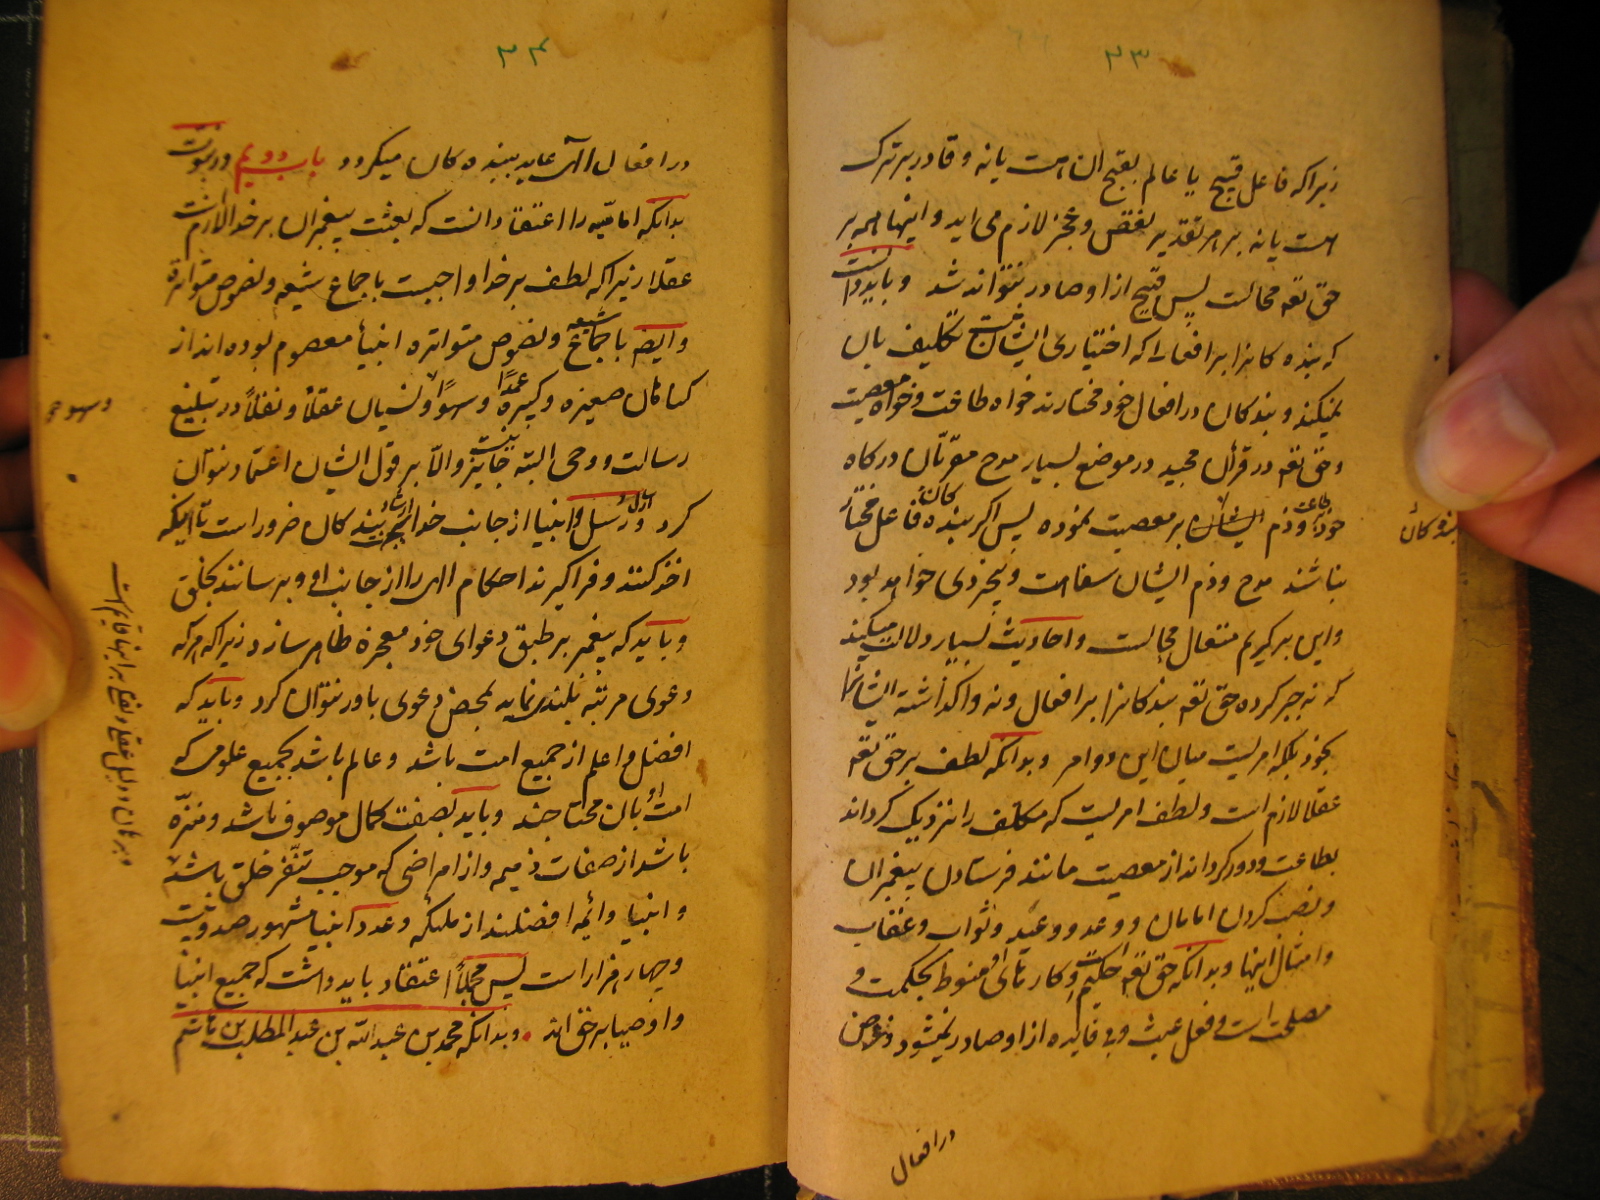 ۳۳
زیراکه فاعل قبیح یا عالم بقبح ان هست یا نه و قادر بر ترک
هست یا نه بر هر تقدیر نقص و عجز لازم می اید و اینها همه بر
حق تعه محالست پس قبیح از او صادر نتواند شد و باید دانست
که بنده کانرا بر افعالی که اختیاری ایشان نیست تکلیف بان
نمیکند و بندکان در افعال خود مختارند خواه طاعت و خواه معصیت
و حق تعه در قرآن مجید در موضع بسیار مدح مقربان درکاه
خود و ذم ایشان بر معصیت نموده پس اکر بنده کان فاعل مختار
طاعت
بنده کان
نباشند مدح و ذم ایشان سفاهت و بیخردی خواهد بود
و این بر کریم متعال محالست و احادیث بسیار دلالت میکند
که نه جبر کرده حق تعه بندکانرا بر افعال و نه واکذاشته ایشانرا
بخود بلکه امریست میان این دو امر و بدانکه لطف بر حق تعه
عقلا لازم است و لطف امریست که مکلف را نزدیک کرداند
بطاعت و دور کرداند از معصیت مانند فرستادن پیغمبران
و نصب کردن امامان و وعد و وعید و ثواب و عقاب
و امثال اینها و بدانکه حق تعه حکیم است و کارهای او منوط بحکمت و
مصلحت است و فعل عبث و بی فایده از او صادر نمیشود و غرض
در افعال
۳۴
در افعال الهی عاید ببنده کان میکردد باب دویم در نبوت
بدانکه امامیه را اعتقاد انست که بعثت پیغمبران بر خدا لازم است
عقلا زیراکه لطف بر خدا واجبست باجماع شیعه و نصوص متواتره
و ایضا باجماع شیعه و نصوص متواتره انبیا معصوم بوده اند از
کناهان صغیره و کبیره عمدًا و سهوًا و نسیان عقلاً و نقلاً در تبلیغ
و سهو
رسالت و وحی البته جایز نیست و الا بر قول ایشان اعتماد نتوان
کرد و ارسال رسل و انبیا از جانب خدا ببنده کان ضرور است تا اینکه
اخذ کنند و فراکیرند احکام الهی را از جانب او و برسانند بخلق
و باید که پیغمبر بر طبق دعوای خود معجزه ظاهر سازد زیراکه هر که
دعوی مرتبه بلندی نماید بمحض دعوی باور نتوان کرد و باید که
افضل و اعلم از جمیع امت باشد و عالم باشد بجمیع علومی که
امت او بان محتاجند و باید بصفت کمال موصوف باشد و منزه
باشد از صفات ذمیمه و از امراضی که موجب تنفر خلق باشد
و انبیا و ائمه افضلند از ملئکه و عدد انبیا مشهور صد و بیست
و چهار هزار است پس مجملاً اعتقاد باید داشت که جمیع انبیا
و اوصیا بر حق اند و بدانکه محمد بن عبد الله بن عبد المطلب بن هاشم
و برهان و دلیل عقلی و نقلی بر اینها قایم است